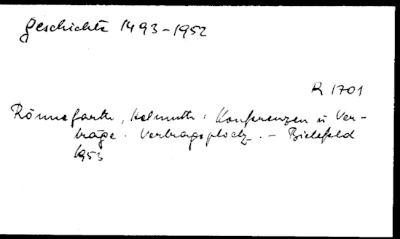 Geschichte 1493-1952
R 1701
Rönnefarth, Helmuth: Konferenzen u Ver-
träge. Vertragsploetz. - Bielefeld
1953